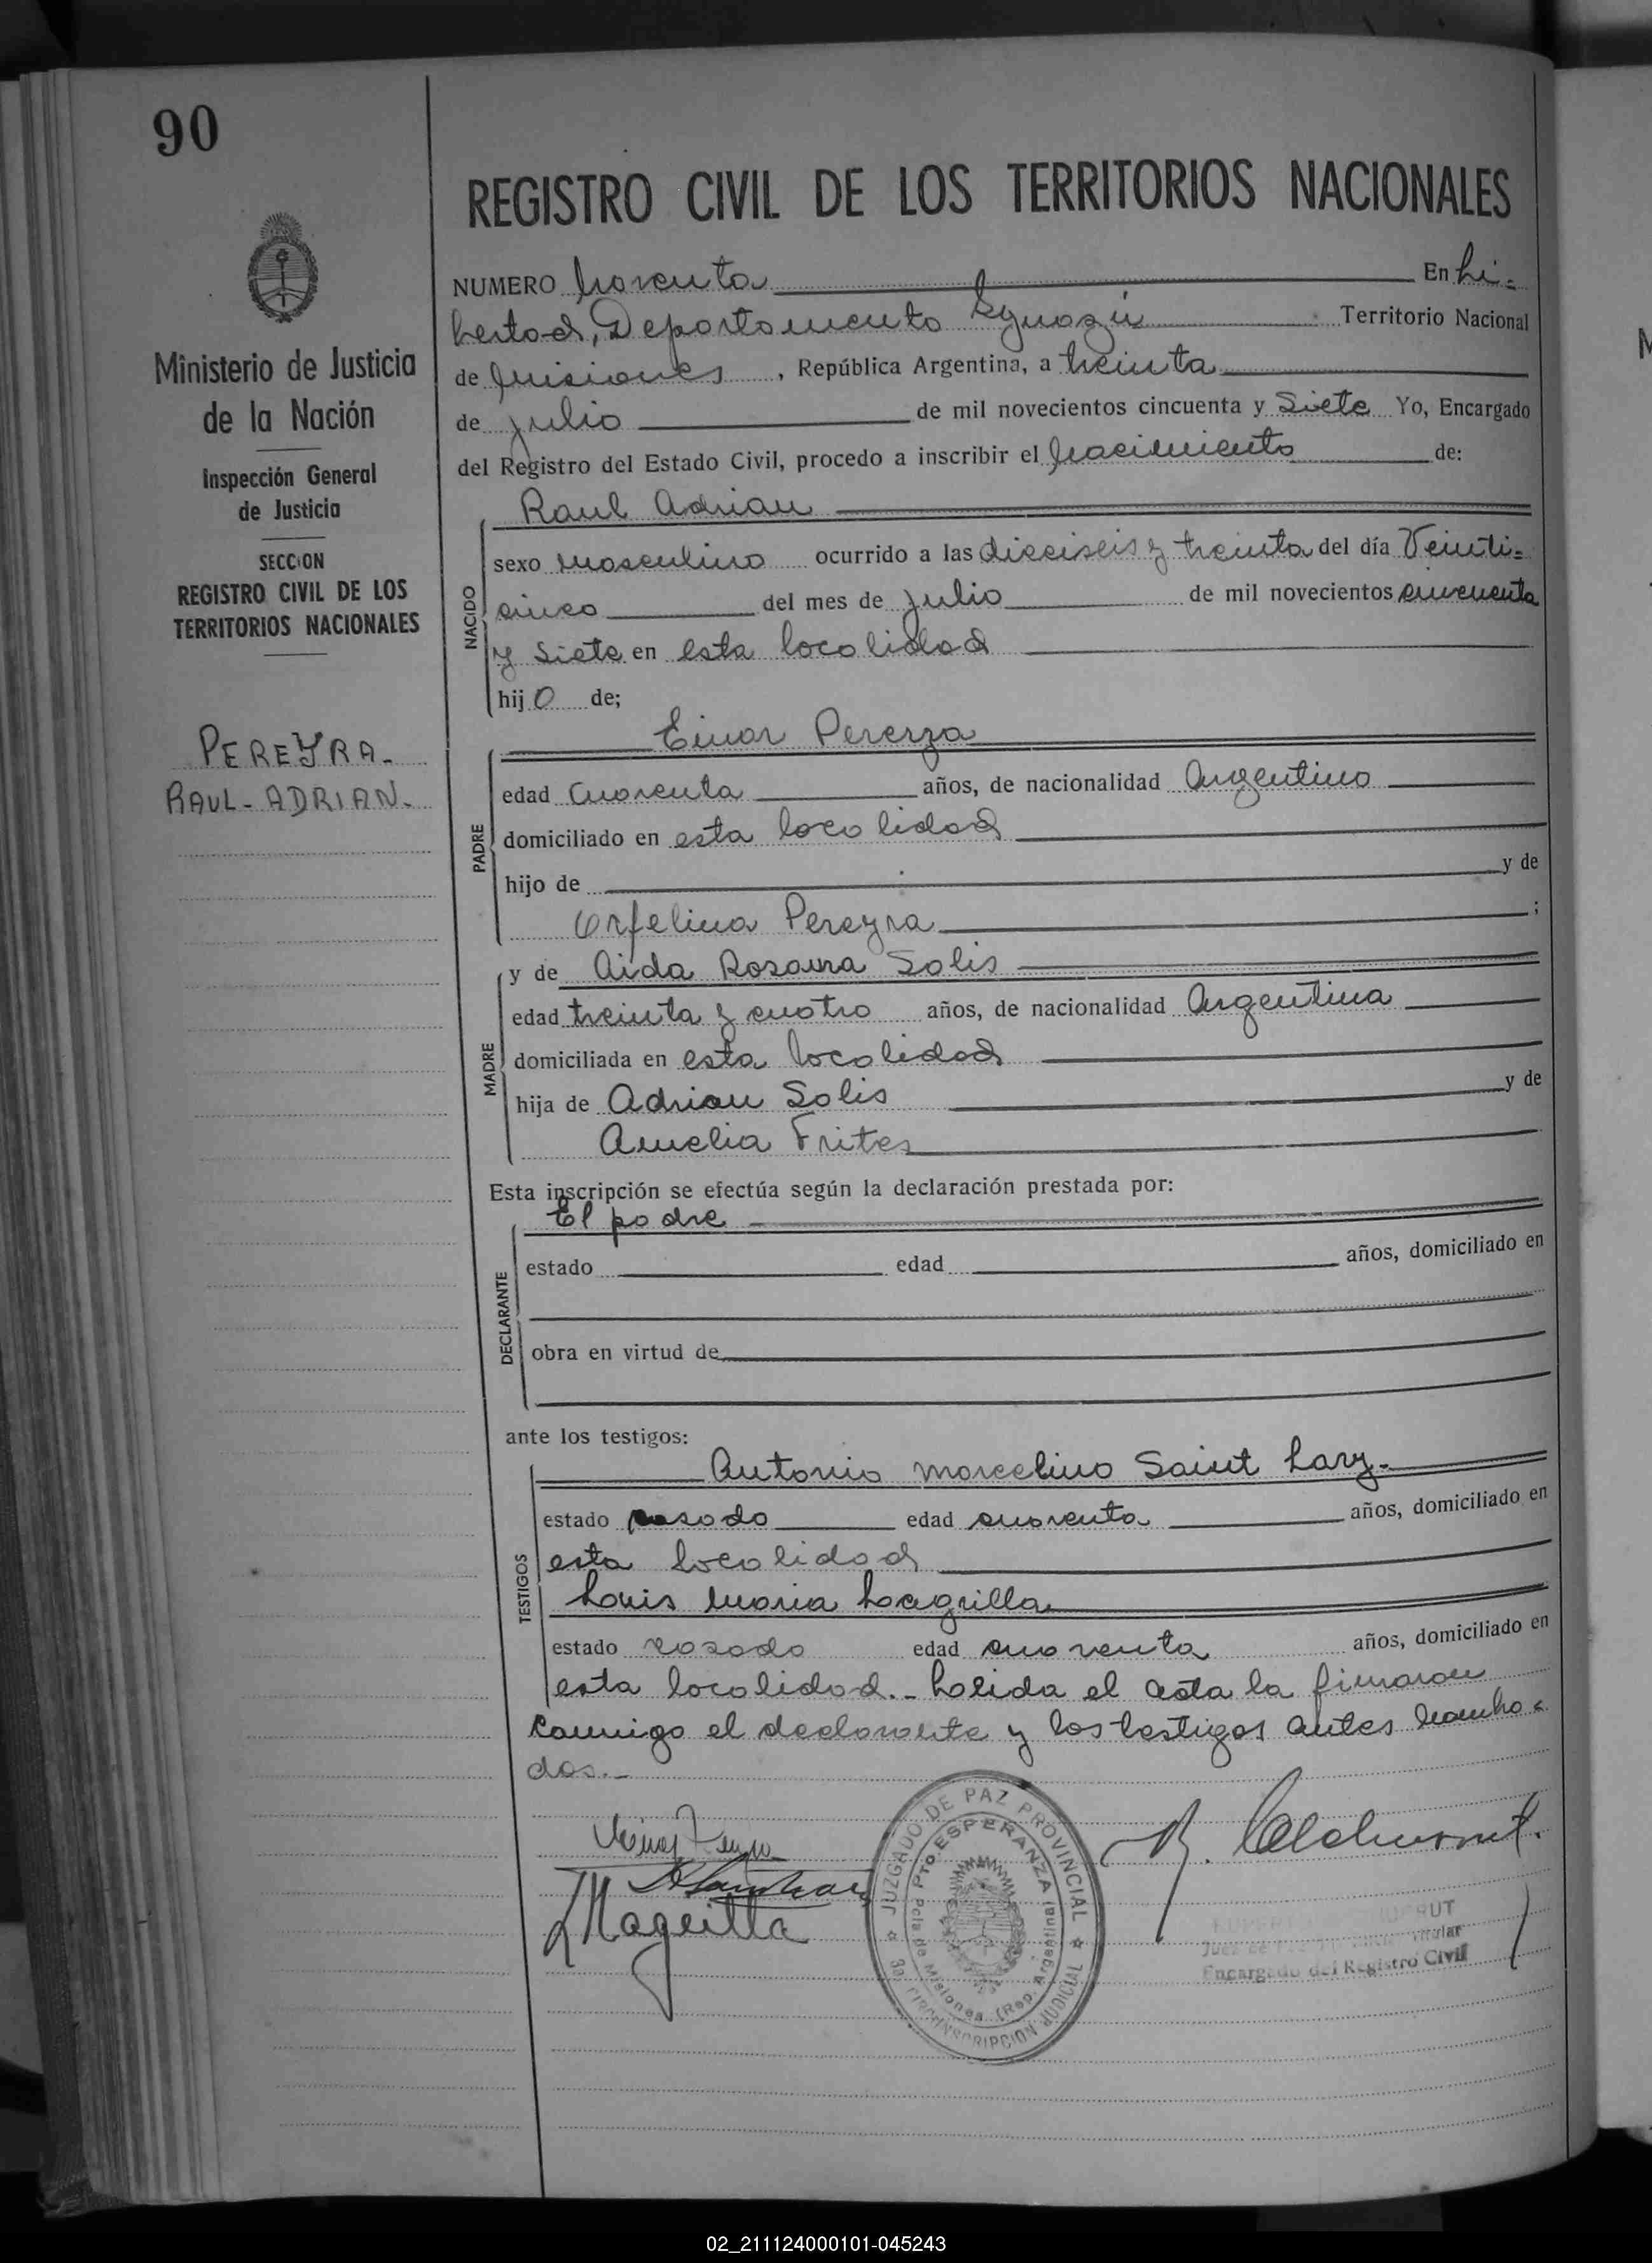 90
REGISTRO CIVIL DE LOS TERRITORIOS NACIONALES
Ministerio de Justicia
de la Nación
Inspección General
de Justicia
SECCION
REGISTRO CIVIL DE LOS
TERRITORIOS NACIONALES
PEREYRA-
RAUL-ADRIAN-
NUMERO Noventa En Li-
bertad, Departamento Iguazú Territorio Nacional
de Misiones, República Argentina, a treinta
de julio de mil novecientos cincuenta y Siete Yo, Encargado
del Registro del Estado Civil, procedo a inscribir el Nacimiento de:
Raul Adrian
NACIDO
sexo masculino ocurrido a las dieciseis y treinta del día Veinti-
cinco del mes de julio de mil novecientos cincuenta
y Siete en esta localidad
hijo de;
Einar Pereyra
PADRE
edad Cuarenta años, de nacionalidad Argentino
domiciliado en esta localidad
hijo de y de
Orfelina Pereyra ;
MADRE
y de Aida Rosaura Solis
edad treinta y cuatro años, de nacionalidad Argentina
domiciliada en esta localidad
hija de Adrian Solis y de
Amelia Frites
Esta inscripción se efectúa según la declaración prestada por:
El padre
DECLARANTE
estado edad años, domiciliado en
obra en virtud de
ante los testigos:
TESTIGOS
Antonio Marcelino Saint Lary-
estado casado edad cuarenta años, domiciliado en
esta localidad
Louis Maria Lagrilla
estado casado edad cuarenta años, domiciliado en
esta localidad.- Leida el acta la firmaron
conmigo el declarante y los testigos antes nombra-
dos.-
JUZGADO DE PAZ PROVINCIAL
3a. CIRCUNSCRIPCION JUDICIAL
Pto. ESPERANZA
Pcia de Misiones (Rep. Argentina)
Juez de Paz Titular
Encargado del Registro Civil
02_211124000101-045243